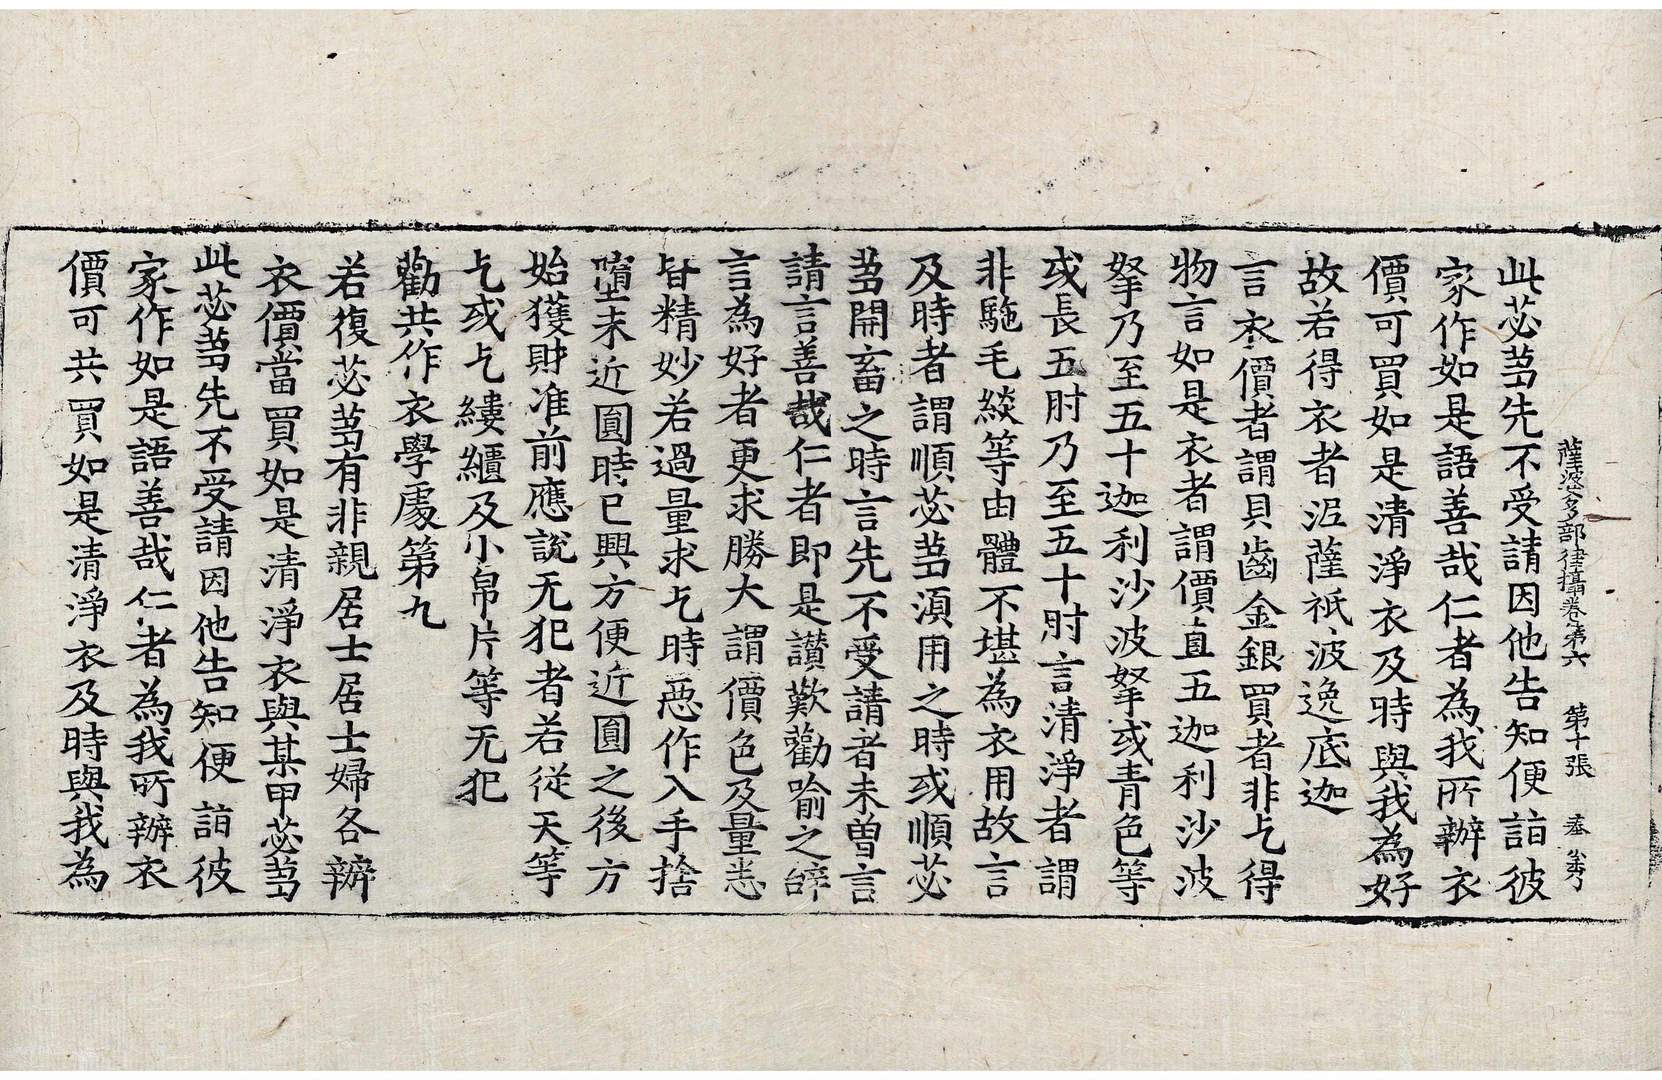 薩婆多部律攝卷第六　第十張　㤗
此苾芻先不受請因他告知便詣彼
家作如是語善哉仁者為我所辦衣
價可買如是清淨衣及時與我為好
故若得衣者泥薩祇波逸底迦
言衣價者謂貝齒金銀買者非乞得
物言如是衣者謂價直五迦利沙波
拏乃至五十迦利沙波拏或青色等
或長五肘乃至五十肘言清淨者謂
非駞毛緂等由體不堪為衣用故言
及時者謂順苾芻湏用之時或順苾
芻開畜之時言先不受請者未曾言
請言善哉仁者即是讃歎勸喻之辝
言為好者更求勝大謂價色及量悉
皆精妙若過量求乞時惡作入手捨
墮未近圓時已興方便近圓之後方
始獲財准前應說无犯者若從天等
乞或乞縷繣及小帛片等无犯
勸共作衣學處第九
若復苾芻有非親居士居士婦各辦
衣價當買如是清淨衣與某甲苾芻
此苾芻先不受請因他告知便詣彼
家作如是語善哉仁者為我所辦衣
價可共買如是清淨衣及時與我為